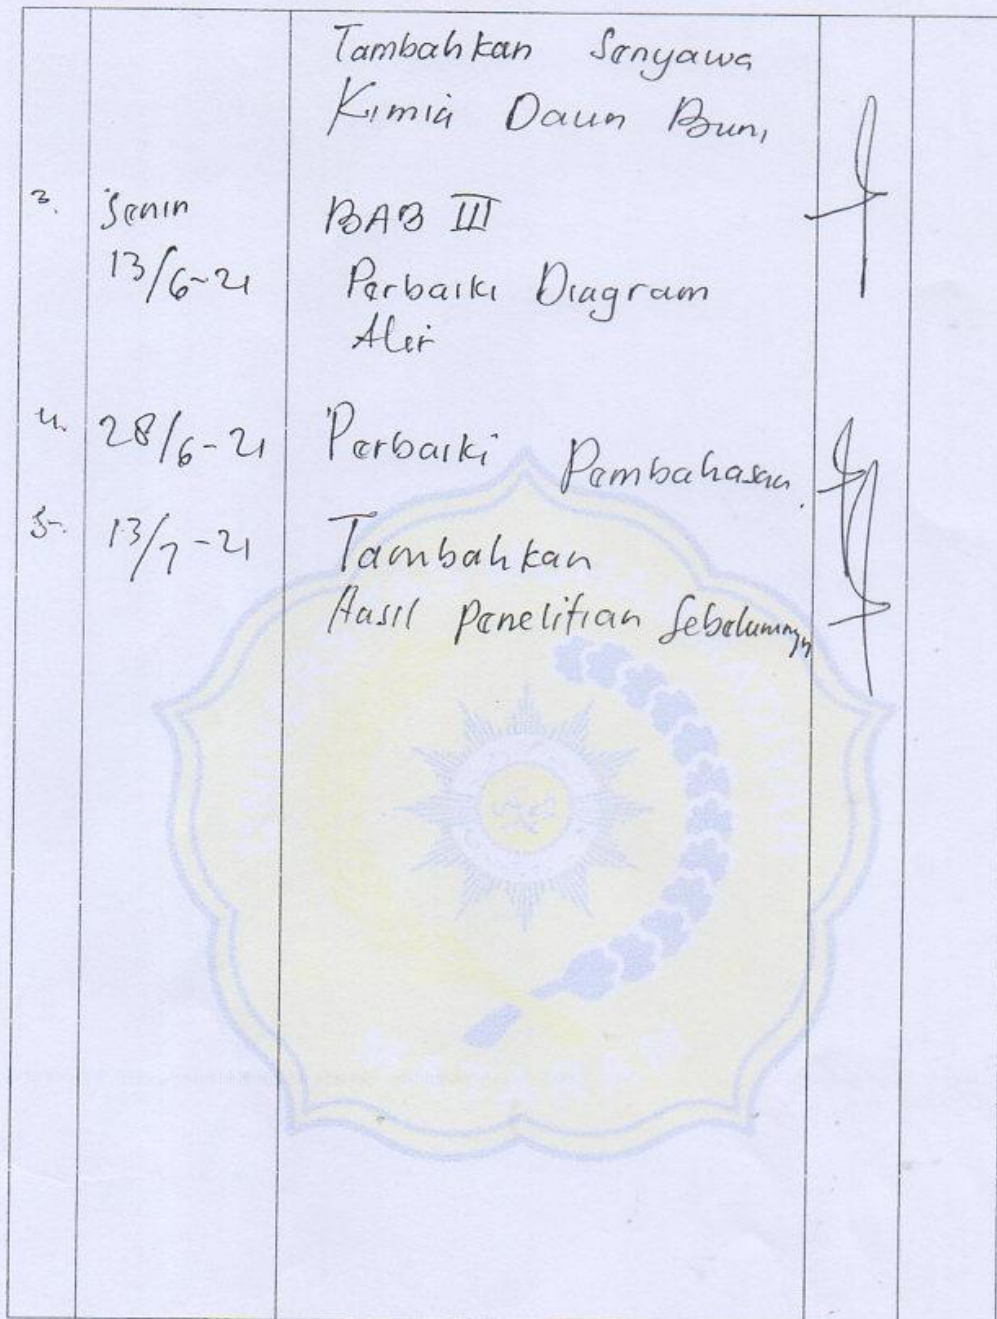 Tambahkan Senyawa
Kimia Daun Buni
3. Senin BAB III
13/6-21 Perbaiki Diagram
Alir
4. 28/6-21 Perbaiki Pembahasan.
5. 13/7-21 Tambahkan
Hasil penelitian Sebelumnya